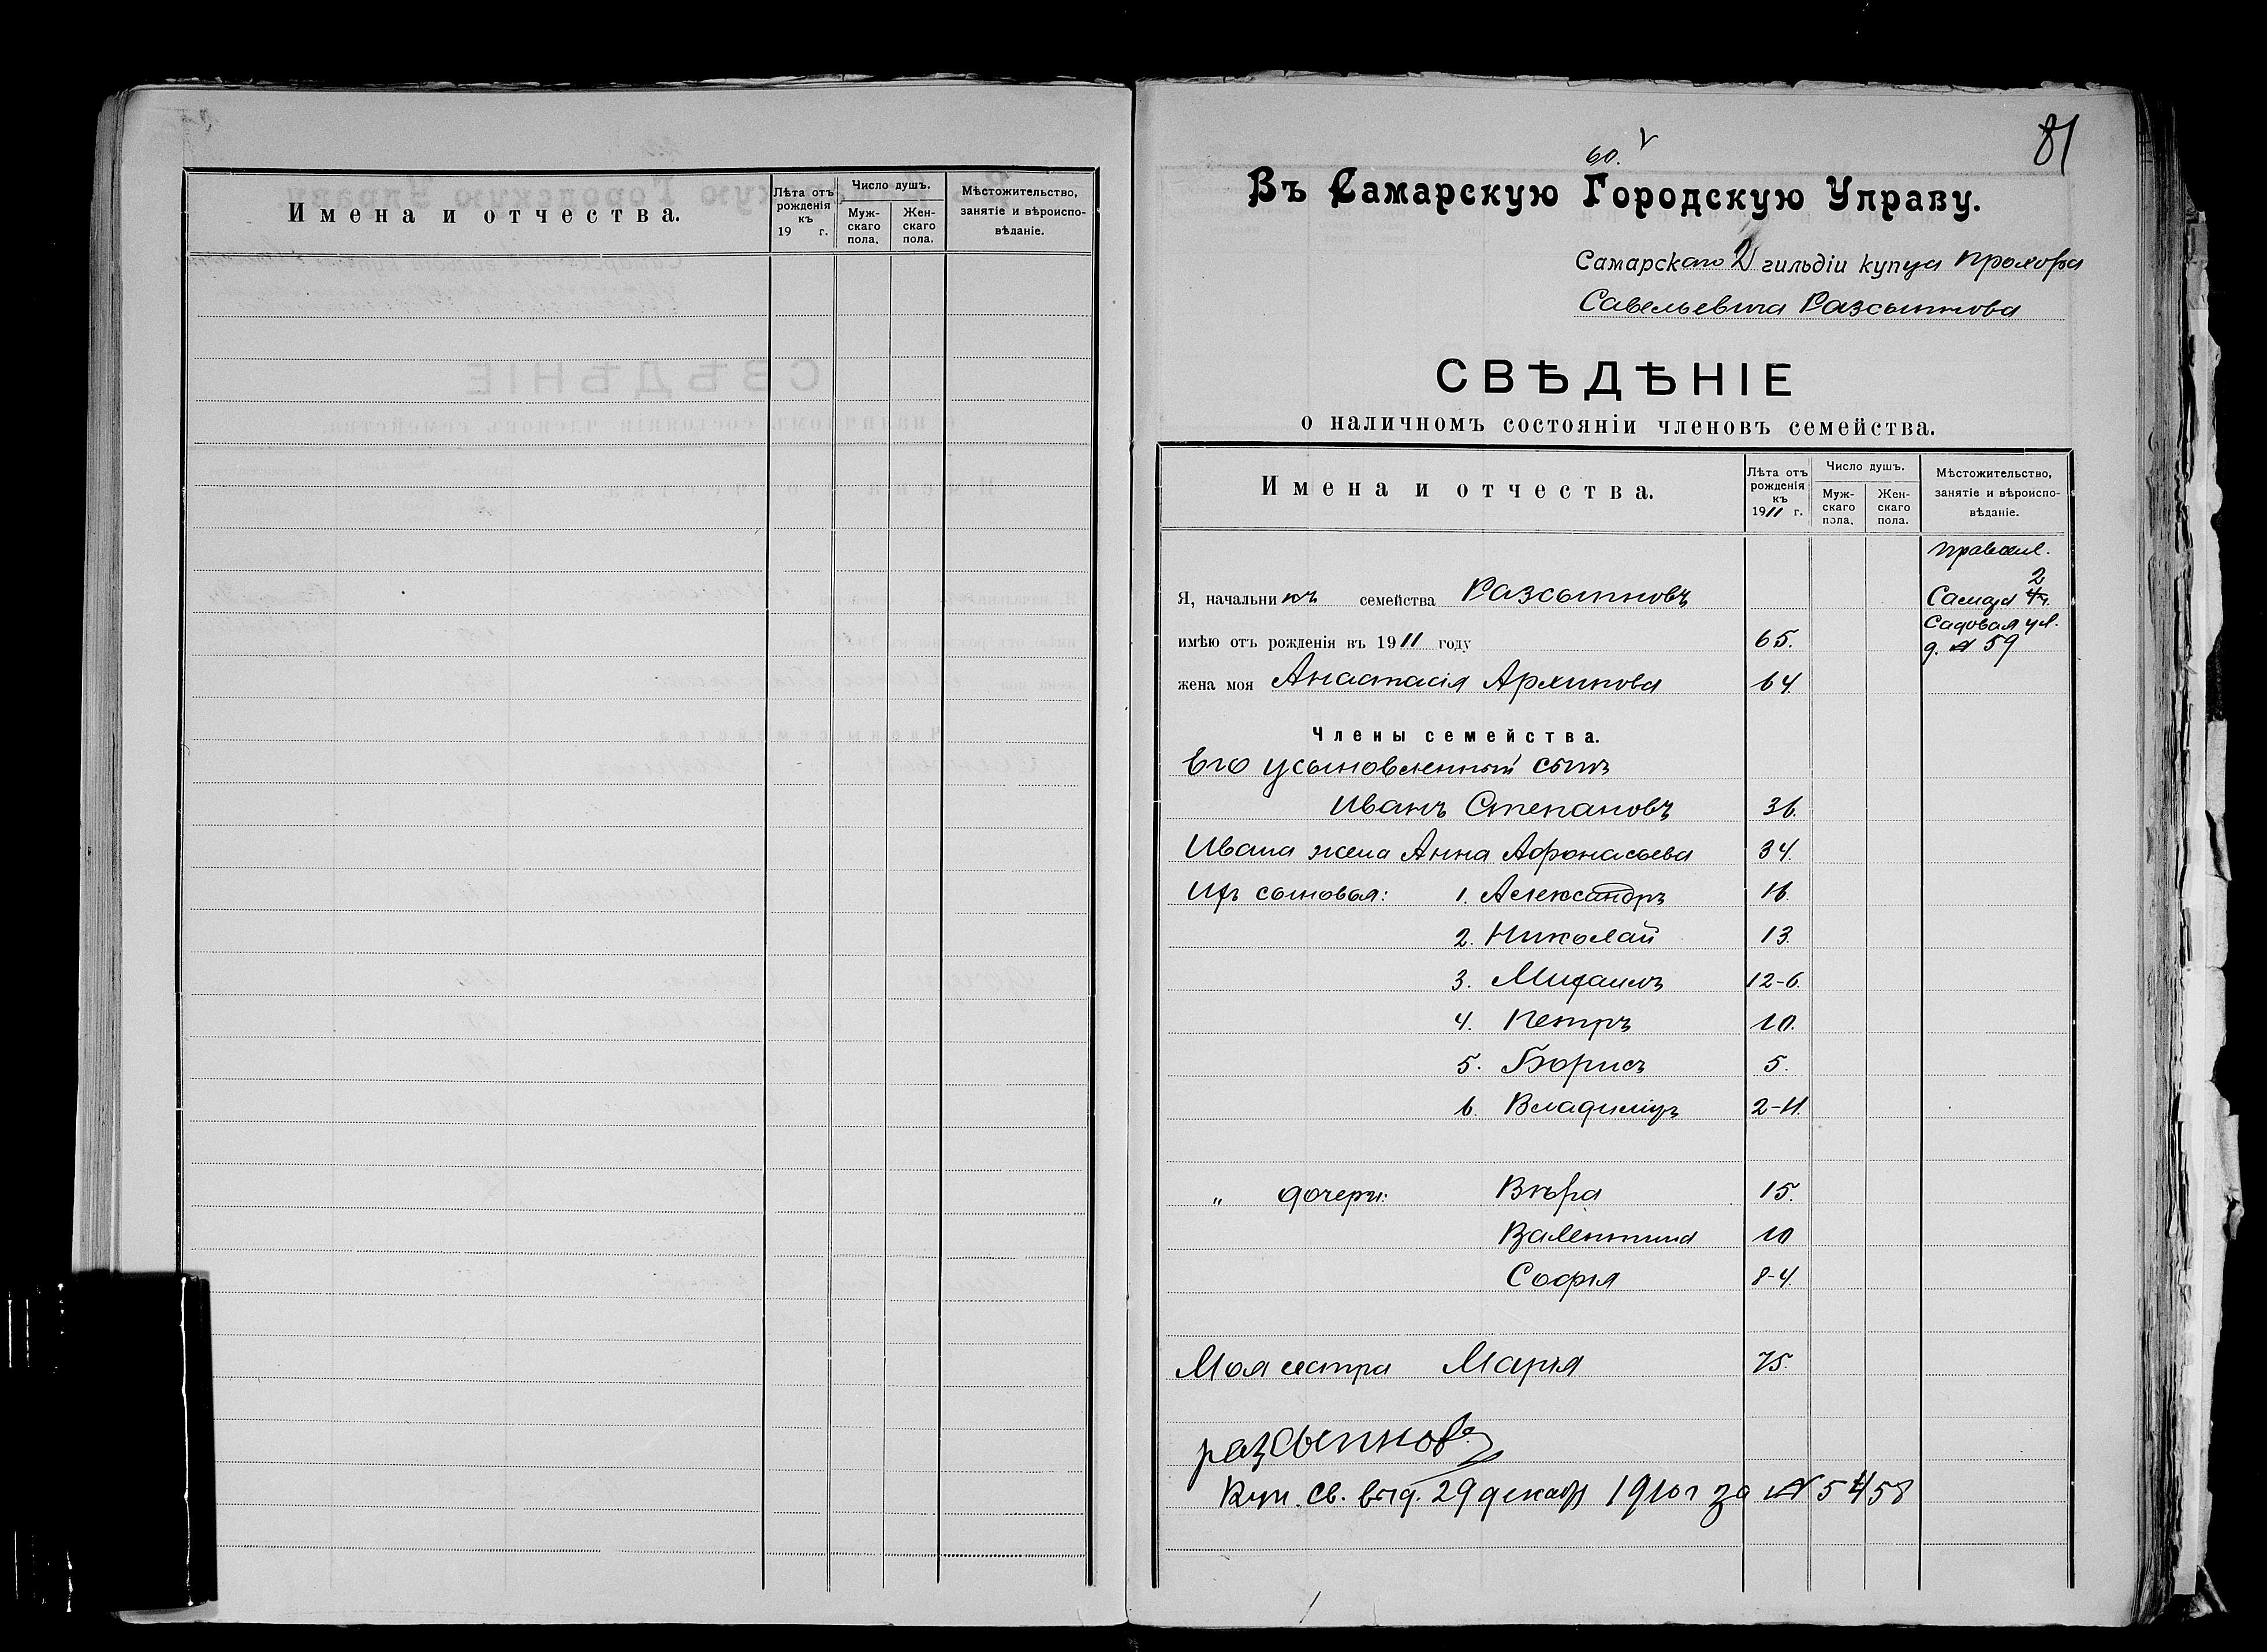 Имена и отчества.
Лѣта отъ рожденія къ 19 г.
Число душъ.
Муж-скаго пола.
Жен-скаго пола.
Мѣстожительство, занятіе и вѣроиспо-вѣданіе.
81
60.
Въ Самарскую Городскую Управу.
Самарскаго 2 гильдіи купца Прохора
Савельевича Разсыпнова
СВѢДѢНІЕ
о наличномъ состояніи членовъ семейства.
Имена и отчества.
Лѣта отъ рожденія къ 1911 г.
Число душъ.
Муж-скаго пола.
Жен-скаго пола.
Мѣстожительство, занятіе и вѣроиспо-вѣданіе.
Правосл.
Я, начальникъ семейства Разсыпновъ
Самара 2 ч.
Садовая ул.
имѣю отъ рожденія въ 1911 году 65.
д. № 59
жена моя Анастасія Архипова 64
Члены семейства.
Его усыновленный сынъ
Иванъ Степановъ 36.
Ивана жена Анна Афонасьева 34.
Ихъ сыновья: 1. Александръ 16.
2. Николай 13.
3. Михаилъ 12-6.
4. Петръ 10.
5. Борисъ 5.
6. Владиміръ 2-11.
" дочери: Вѣра 15.
Валентина 10
Софія 8-4.
Моя сестра Марія 75.
разсыпновъ
Куп. св. выд. 29 декабр 1910 г за № 5458